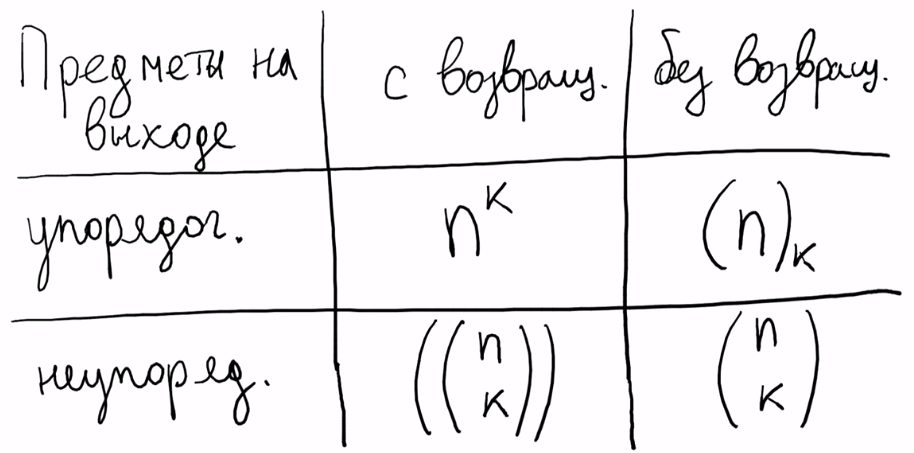 Предметы на выходе | с возвращ. | без возвращ.
упорядоч. | n^к | (n)_к
неупоряд. | ((n к)) | (n к)